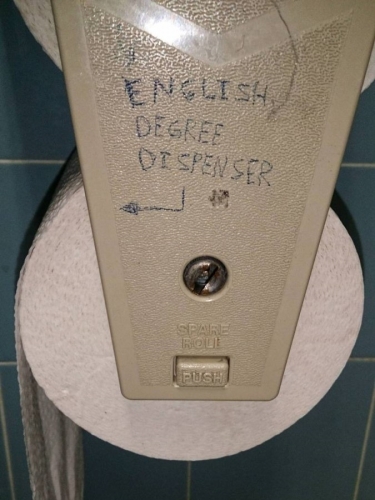 ENGLISH
DEGREE
DISPENSER
SPARE
ROLL
PUSH